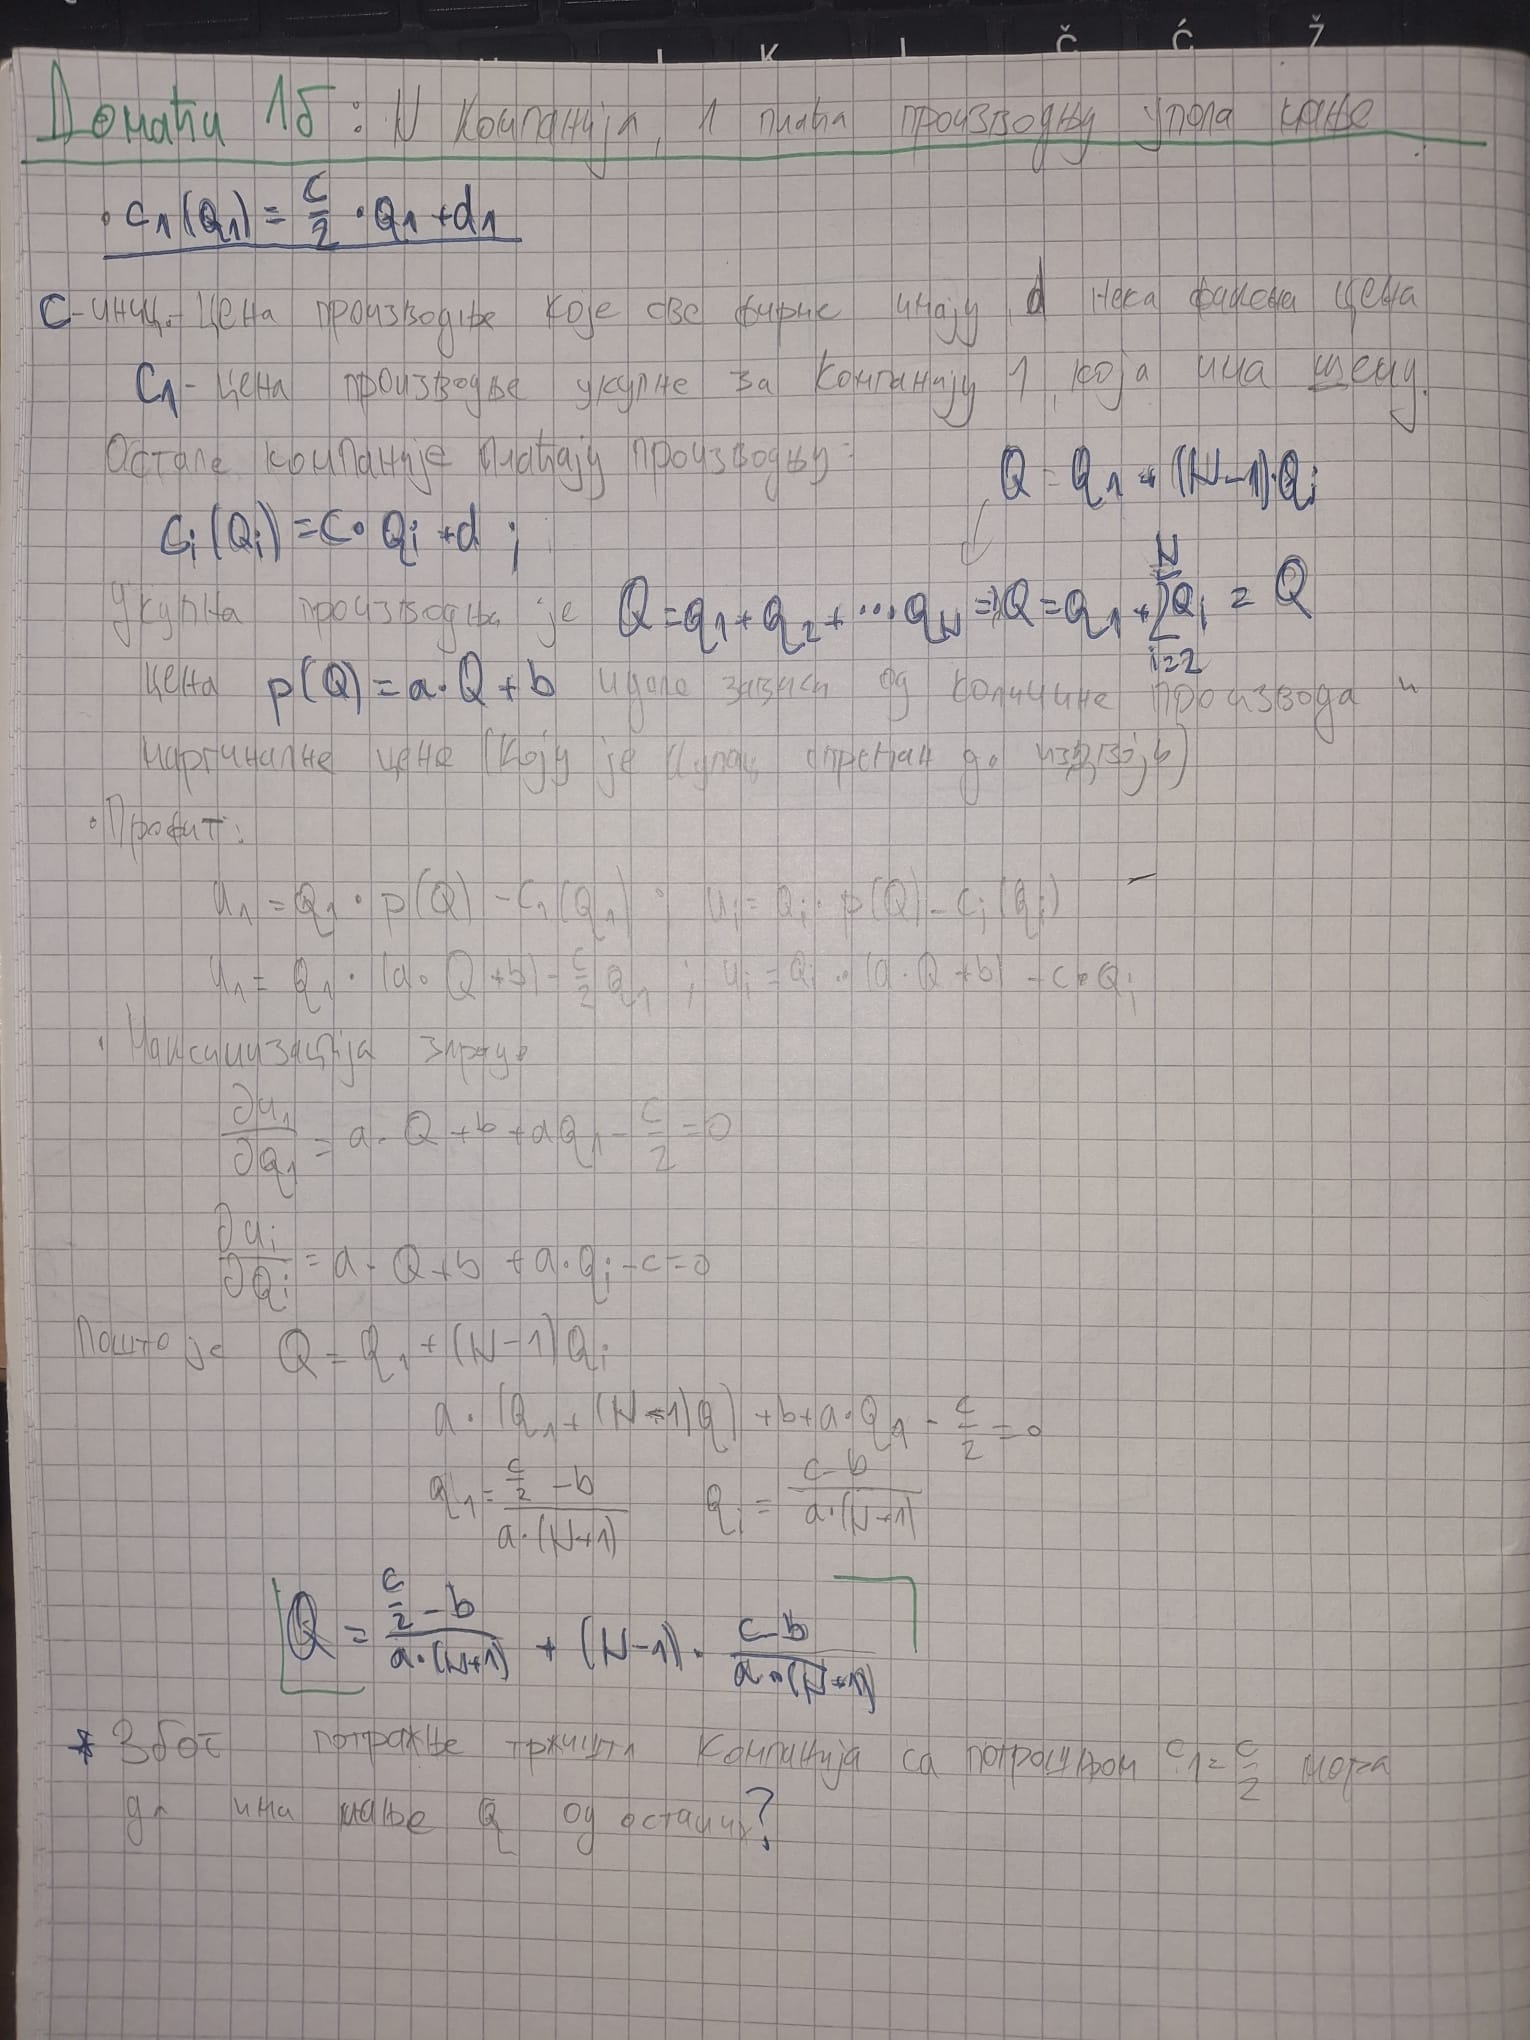 K L Č Ć Ž
Домаћи 1б: N компанија, 1 плаћа производњу упола мање
• c₁(Q₁) = c/2 · Q₁ + d₁
C - иниц. цена производње које све фирме имају, d нека фиксна цена
C₁ - цена производње укупне за компанију 1, која има цену.
Остале компаније плаћају производњу:
Q = q₁ + (N-1)·Qᵢ
cᵢ(Qᵢ) = c · Qᵢ + d ;
Укупна производња је Q = q₁ + q₂ + ... qN => Q = q₁ + ∑ᵢ₌₂ᴺ Qᵢ = Q
цена p(Q) = a · Q + b и зависи од количине производа и
маргиналне цене (коју је купац спреман да b)
• Профит:
u₁ = Q₁ · p(Q) - c₁(Q₁) ; uᵢ = Qᵢ · p(Q) - cᵢ(qᵢ)
u₁ = Q₁ · (a · Q + b) - c/2 Q₁ ; uᵢ = Qᵢ · (a · Q + b) - c · Qᵢ
• Максимизација
∂u₁/∂Q₁ = a · Q + b + aQ₁ - c/2 = 0
∂uᵢ/∂Qᵢ = a · Q + b + a · qᵢ - c = 0
Пошто је Q = q₁ + (N-1)Qᵢ
a · (Q₁ + (N-1)Q) + b + a · Q₁ - c/2 = 0
q₁ = (c/2 - b)/(a · (N+1)) qᵢ = (c-b)/(a · (N+1))
Q = (c/2 - b)/(a · (N+1)) + (N-1) · (c-b)/(a · (N+1))
* Због потражње тржишта компанија са потрошњом c₁ = c/2 мора
да има мање Q од осталих?